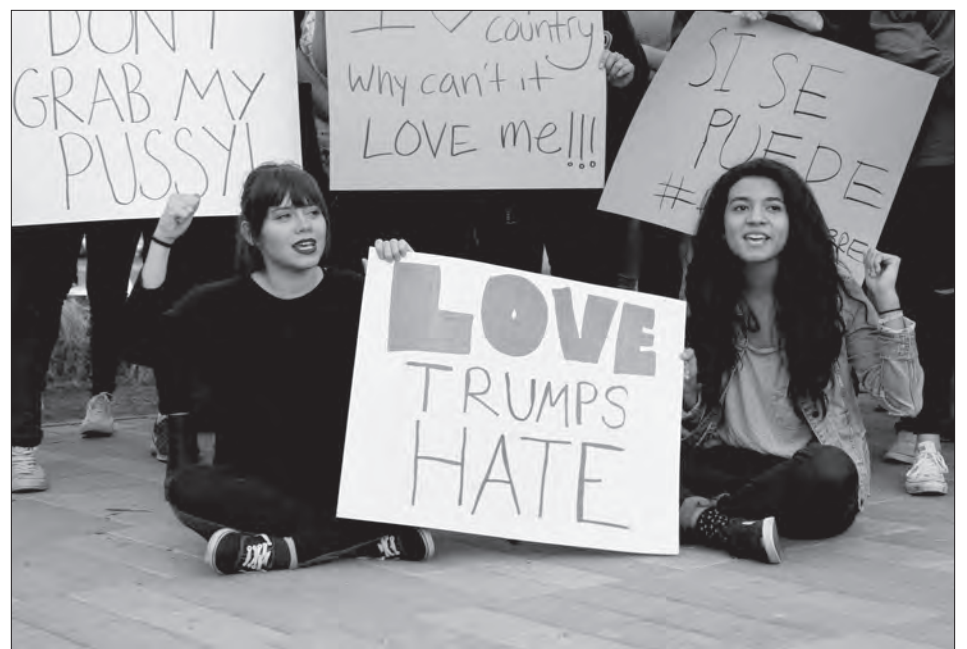 DON'T
GRAB MY
PUSSY!
I ♡ country
why can't it
LOVE me!!!
SI SE
PUEDE
#
BRE
LOVE
TRUMPS
HATE